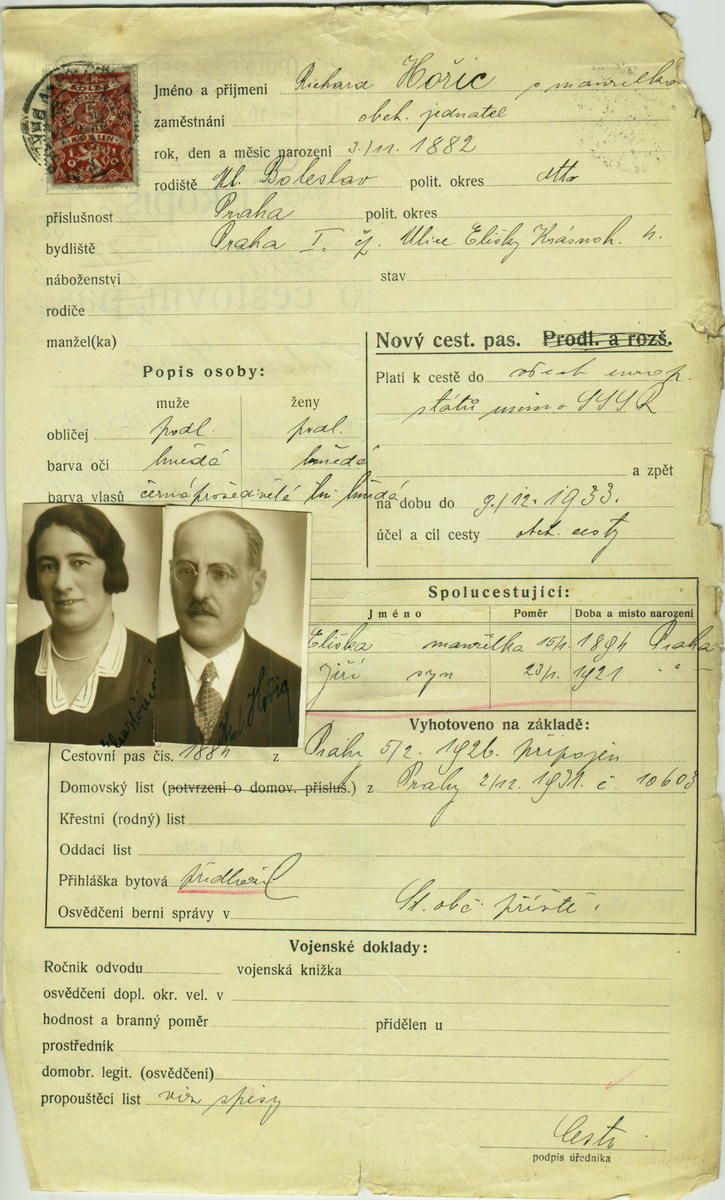 KOLEK
5
KORUN
Jméno a příjmení Richard Hořic s manželkou
zaměstnání obch. jednatel
rok, den a měsíc narození 3./11. 1882
rodiště Ml. Boleslav polit. okres dtto
příslušnost Praha polit. okres
bydliště Praha I. čp. Ulice Elišky Krásnoh. 4.
náboženství stav
rodiče
manžel(ka)
Nový cest. pas. Prodl. a rozš.
Popis osoby:
muže ženy
obličej podl. podl.
barva očí hnědá hnědá
barva vlasů černá prošedivělá tm. hnědá
Platí k cestě do všech europ.
států mimo SSSR
a zpět
na dobu do 9./12. 1933.
účel a cíl cesty obch. cesty
Spolucestující:
Jméno Poměr Doba a místo narození
Eliška manželka 15/1. 1894 Praha
Jiří syn 23/1. 1921 "
Vyhotoveno na základě:
Cestovní pas čís. 1884 z Prahy 5/2. 1926. připojen
Domovský list (potvrzení o domov. přísluš.) z Prahy 2/12. 1931. č. 10603
Křestní (rodný) list
Oddací list
Přihláška bytová předložil
Osvědčení berní správy v St. obč. příště
Vojenské doklady:
Ročník odvodu vojenská knížka
osvědčení dopl. okr. vel. v
hodnost a branný poměr přidělen u
prostředník
domobr. legit. (osvědčení)
propouštěcí list viz spisy
podpis úředníka